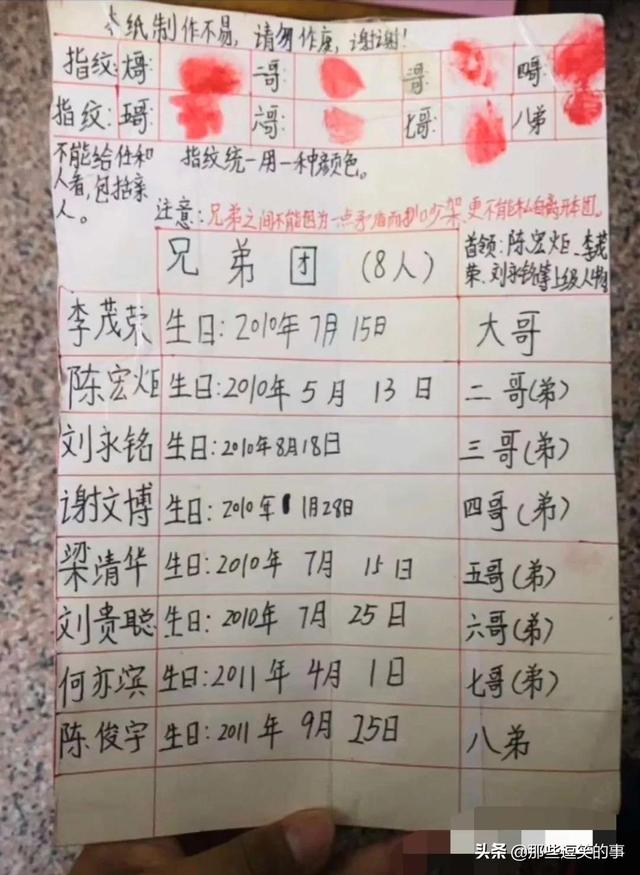 本纸制作不易，请勿作废，谢谢！
指纹： 大哥： 二哥： 三哥： 四哥：
指纹： 五哥： 六哥： 七哥： 八弟
不能给任和人看，包括亲人。
指纹统一用一种颜色。
注意：兄弟之间不能因为一点矛盾而 吵架，更不能私自离开本团。
兄弟团 （8人）
首领：陈宏炬、李茂荣、刘永铭等上级人物
李茂荣 生日：2010年7月15日 大哥
陈宏炬 生日：2010年5月13日 二哥（弟）
刘永铭 生日：2010年8月18日 三哥（弟）
谢文博 生日：2010年 1月28日 四哥（弟）
梁清华 生日：2010年7月15日 五哥（弟）
刘贵聪 生日：2010年7月25日 六哥（弟）
何亦滨 生日：2011年4月1日 七哥（弟）
陈俊宇 生日：2011年9月25日 八弟
头条 @那些逗笑的事